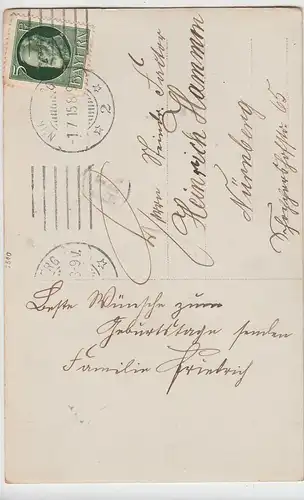 5 BAYERN 5
-1.7.15 8-9V.
2
8-9V.
Herrn
Heinrich Hammen
Nürnberg
65
Beste Wünsche zum
Geburtstage senden
Familie Frietrich